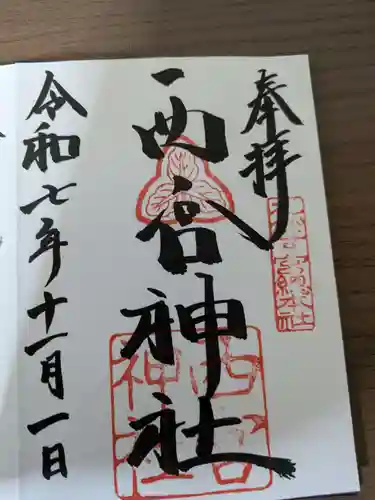 奉拝
西宮神社
西宮神社
令和七年十一月一日